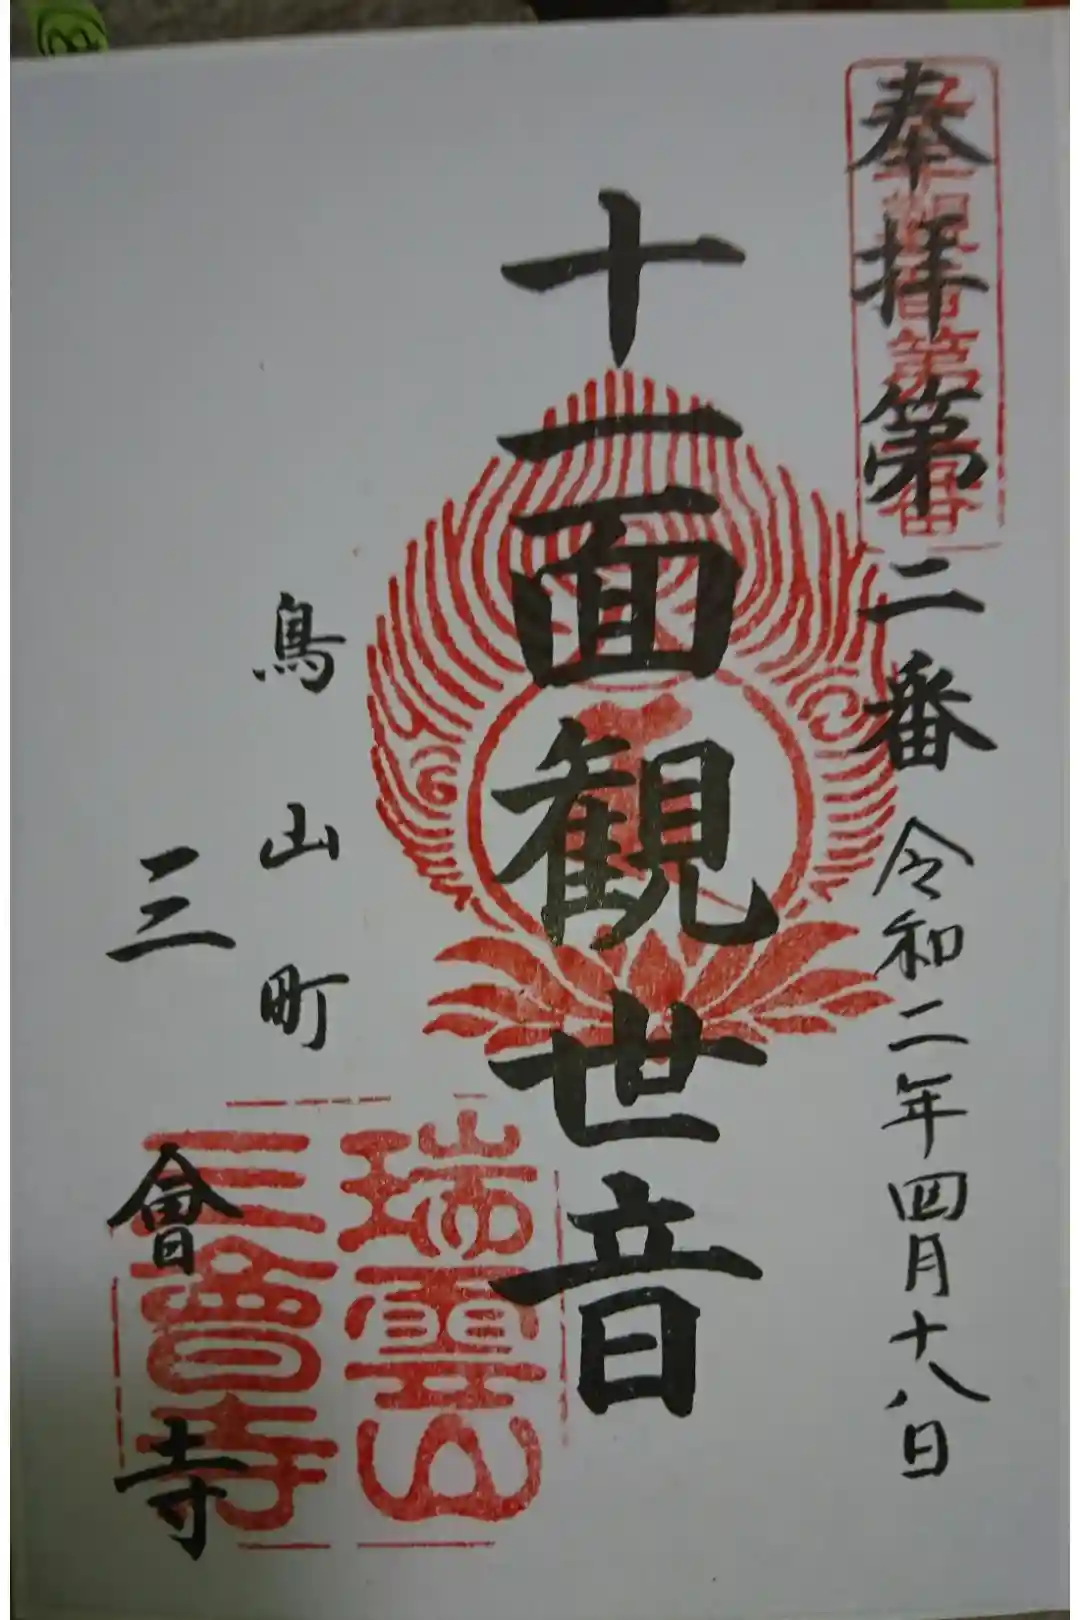 奉拝第二番 令和二年四月十八日
十一面観世音
鳥山町
三會寺
瑞雲山
三會寺